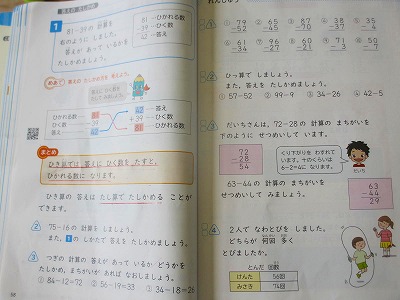 答えの たしかめ
1
81−39の 計算を
右のように しました。
答えが あって いるかを
たしかめましょう。
81 …ひかれる数
−39 …ひく数
42 …答え
めあて 答えの たしかめ方を 考えよう。
ひかれる数
ひく数
答え
81
−39
42
42
+39
81
まとめ
ひき算では、答えに ひく数を たすと、
ひかれる数に なります。
ひき算の 答えは たし算で たしかめる ことが
できます。
② 75−16の 計算を しましょう。
また、1の しかたで 答えを たしかめましょう。
③ つぎの 計算の 答えが あって いるか どうかを
たしかめ、まちがいが あれば なおしましょう。
① 84−12=72 ② 56−19=33 ③ 34−18=26
れんしゅう
① 79
−52
② 65
−45
③ 87
④ 38
−35
⑤ 35
−4
⑥ 61
−34
⑦ 96
−67
⑧ 60
−21
⑨ 71
⑩ 50
−7
② ひっ算で しましょう。
また、答えを たしかめましょう。
① 57−52 ② 99−9 ③ 34−26 ④ 42−5
③ だいちさんは、72−28の 計算の まちがいを
下のように せつめいして います。
72
−28
54
くり下がりを わすれて
います。十のくらいは
6−2=4に なります。
だいち
63−44の 計算の まちがいを
せつめいして みましょう。
63
−44
29
④ 2人で なわとびを しました。
どちらが 何回 多く
とびましたか。
とんだ 回数
けんた 56回
みさき 74回